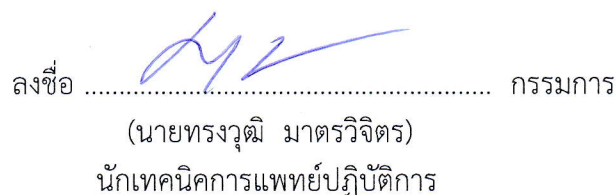 ลงชื่อ ............................................................ กรรมการ
(นายทรงวุฒิ มาตรวิจิตร)
นักเทคนิคการแพทย์ปฏิบัติการ